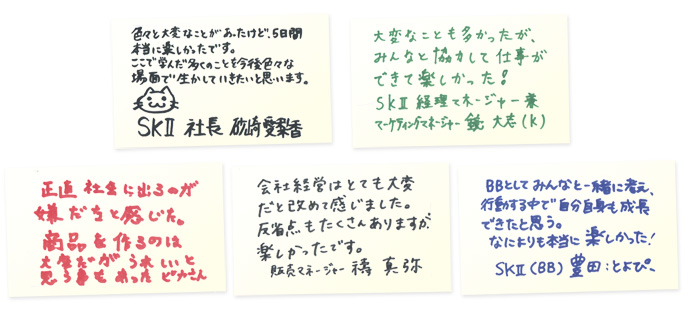 色々と大変なことがあったけど、5日間
本当に楽しかったです。
ここで学んだ多くのことを今後色々な
場面で生かしていきたいと思います。
SKⅡ 社長 砂崎愛梨香
大変なことも多かったが、
みんなと協力して仕事が
できて楽しかった!
SKⅡ 経理マネージャー兼
マーケティングマネージャー 鏡 大志(K)
正直 社会に出るのが
嫌だなと感じた。
商品を作るのは
大変だがうれしいと
思う事もあった ピカさん
会社経営はとても大変
だと改めて感じました。
反省点もたくさんありますが、
楽しかったです。
販売マネージャー 禱 真弥
BBとしてみんなと一緒に考え、
行動する中で自分自身も成長
できたと思う。
なによりも本当に楽しかった!
SKⅡ(BB) 豊田:とよぴ、